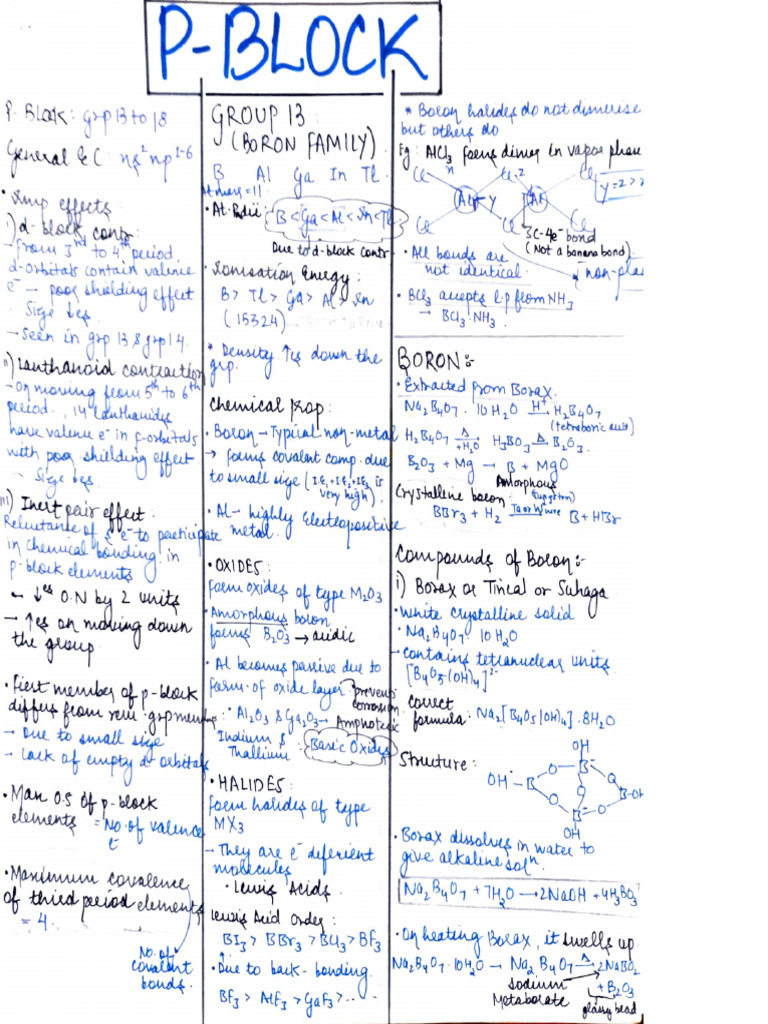 P-BLOCK
P-Block: grp 13 to 18
General E.C: ns² np¹⁻⁶
• Imp effects
i) d-block contr:
- From 3rd to 4th period,
d-orbitals contain valence
e⁻ → poor shielding effect
- Size ↓es
- Seen in grp 13 & grp 14.
ii) Lanthanoid contraction
- On moving from 5th to 6th
period, 14 lanthanides
have valence e⁻ in f-orbitals
with poor shielding effect
- Size ↓es
iii) Inert pair effect:
Reluctance of s e⁻ to participate
in chemical bonding in
p-block elements
- ↓es O.N by 2 units
- ↑es on moving down
the group
• First member of p-block
differs from rem. grp mem:
- Due to small size
- Lack of empty d-orbitals
• Max O.S of p-block
elements = No. of valence
e⁻
• Maximum covalence
of third period elements
= 4.
No. of
covalent
bonds.
GROUP 13:
(BORON FAMILY)
B Al Ga In Tl
At. mass = 11
• At. Radii: B < Ga < Al < In < Tl
Due to d-block contr
• Ionisation Energy:
B > Tl > Ga > Al > In
(15324)
* Density ↑es down the
grp.
Chemical Prop:
• Boron - Typical non-metal
→ forms covalent comp. due
to small size (IE₁+IE₂+IE₃ is
very high)
• Al - highly Electropositive
metal.
• OXIDES:
form oxides of type M₂O₃
• Amorphous boron
forms B₂O₃ → acidic
• Al becomes passive due to
form. of oxide layer → prevents
corrosion
• Al₂O₃ & Ga₂O₃ → Amphoteric
Indium &
Thallium: Basic Oxides
• HALIDES:
form halides of type
MX₃
- They are e⁻ deficient
molecules
• Lewis Acids.
Lewis Acid Order:
BI₃ > BBr₃ > BCl₃ > BF₃
• Due to back-bonding.
BF₃ > AlF₃ > GaF₃ > ....
* Boron halides do not dimerise
but others do
Eg: AlCl₃ forms dimer in vapor phase
Cl x Cl z Cl
Al y Al
y = z >
Cl Cl Cl
3C-4e⁻ bond
(Not a banana bond)
• All bonds are
not identical.
non-pla
• BCl₃ accepts l.p from NH₃
→ BCl₃·NH₃
BORON:-
• Extracted from Borax.
Na₂B₄O₇·10H₂O H⁺→ H₂B₄O₇
(tetraboric acid)
H₂B₄O₇ Δ→ +H₂O H₃BO₃ Δ→ B₂O₃
B₂O₃ + Mg → B + MgO
Amorphous
Crystalline boron: (tungsten)
BBr₃ + H₂ Ta or W wire→ B + HBr
Compounds of Boron:-
i) Borax or Tincal or Suhaga
• White crystalline solid
• Na₂B₄O₇·10H₂O
- contains tetranuclear units
[B₄O₅(OH)₄]²⁻
Correct
formula: Na₂[B₄O₅(OH)₄]·8H₂O
Structure:
OH
O B⁻ O
OH - B O B-OH
O B⁻ O
OH
• Borax dissolves in water to
give alkaline solⁿ.
Na₂B₄O₇ + 7H₂O → 2NaOH + 4H₃BO₃
• On heating Borax, it swells up
Na₂B₄O₇·10H₂O → Na₂B₄O₇ Δ→ 2NaBO₂
+ B₂O₃
sodium
Metaborate
glassy bead